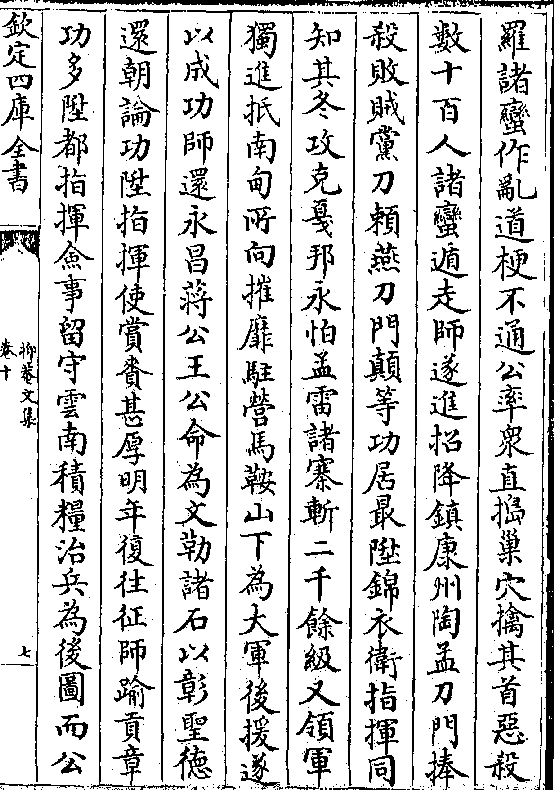 羅諸蠻作亂道梗不通公率衆直搗巢穴擒其首惡殺
數十百人諸蠻遁走師遂進招降鎮康州陶孟刀門捧
殺敗賊黨刀賴燕刀門顛等功居最陞錦衣衛指揮同
知其冬攻克戛邦永怕孟雷諸寨斬二千餘級又領軍
獨進抵南甸所向摧靡駐營馬鞍山下為大軍後援遂
以成功師還永昌蔣公王公命為文勒諸石以彰聖徳
還朝論功陞指揮使賞賚甚厚明年復往征師踰貢章
功多陞都指揮僉事留守雲南積糧治兵為後圖而公
欽定四庫全書
抑菴文集
卷十
七